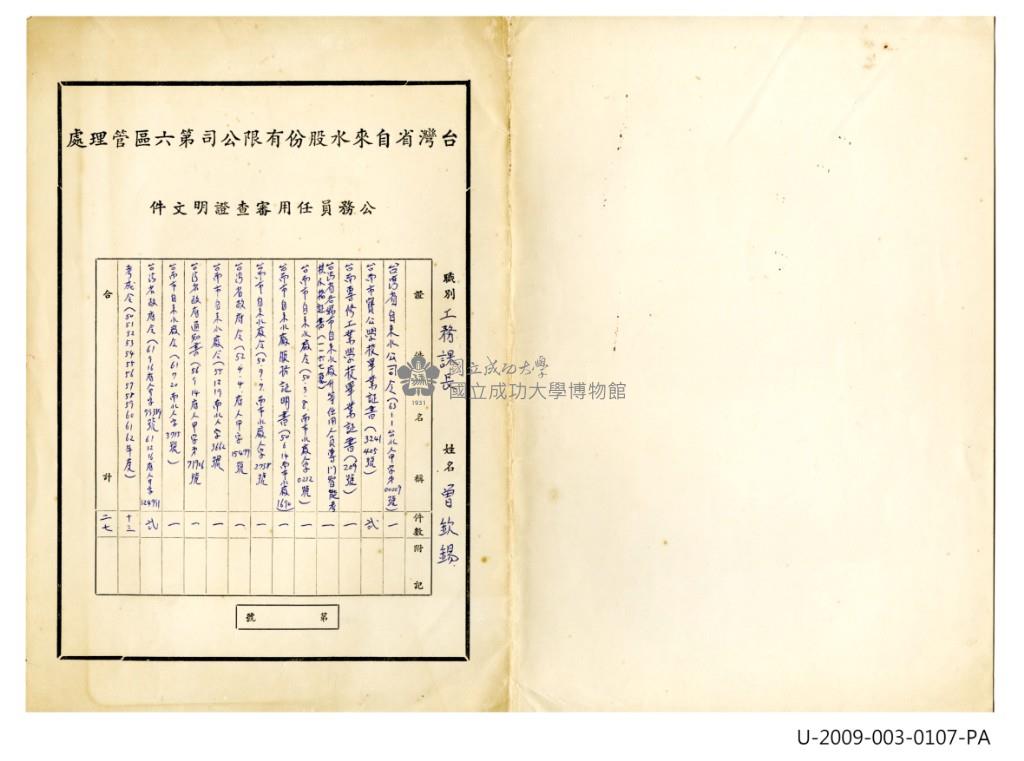 台灣省自來水股份有限公司第六區管理處
公務員任用審查證明文件
職別 工務課長 姓名 曾欽錫
證件名稱 件數 附記
台灣省自來水公司令(63-1-1台水人甲字第00009號) 一
台南市寶公學校畢業証書(3241 405號) 弍
台南專修工業學校畢業証書(209號) 一
台灣省各縣市自來水廠升等任用人員專門智能考
核及格証書(一一六七號) 一
台南市自來水廠令(50-3-8.南市水廠人字0222號) 一
台南市自來水廠服務証明書(50 6 14南市水廠1690) 一
台南市自來水廠令(50.9.7.南市水廠人字2758號 一
台灣省政府令(52.4.4.府人甲字15477號 一
台南市自來水廠令(55 12 19南水人字3662號 一
台灣省政府通知書(56 9 14府人甲字第71916號 一
台南市自來水廠令(61 9 20南水人字3775號) 一
台灣省政府令(61 9 16府人令字第
號 61 12 16府人甲字124951 弍
考成令(50 51 52 53 54 55 56 57 58 59 60 61 62年度) 十三
合計 二七
第 號
國立成功大學
國立成功大學博物館
1931
U-2009-003-0107-PA